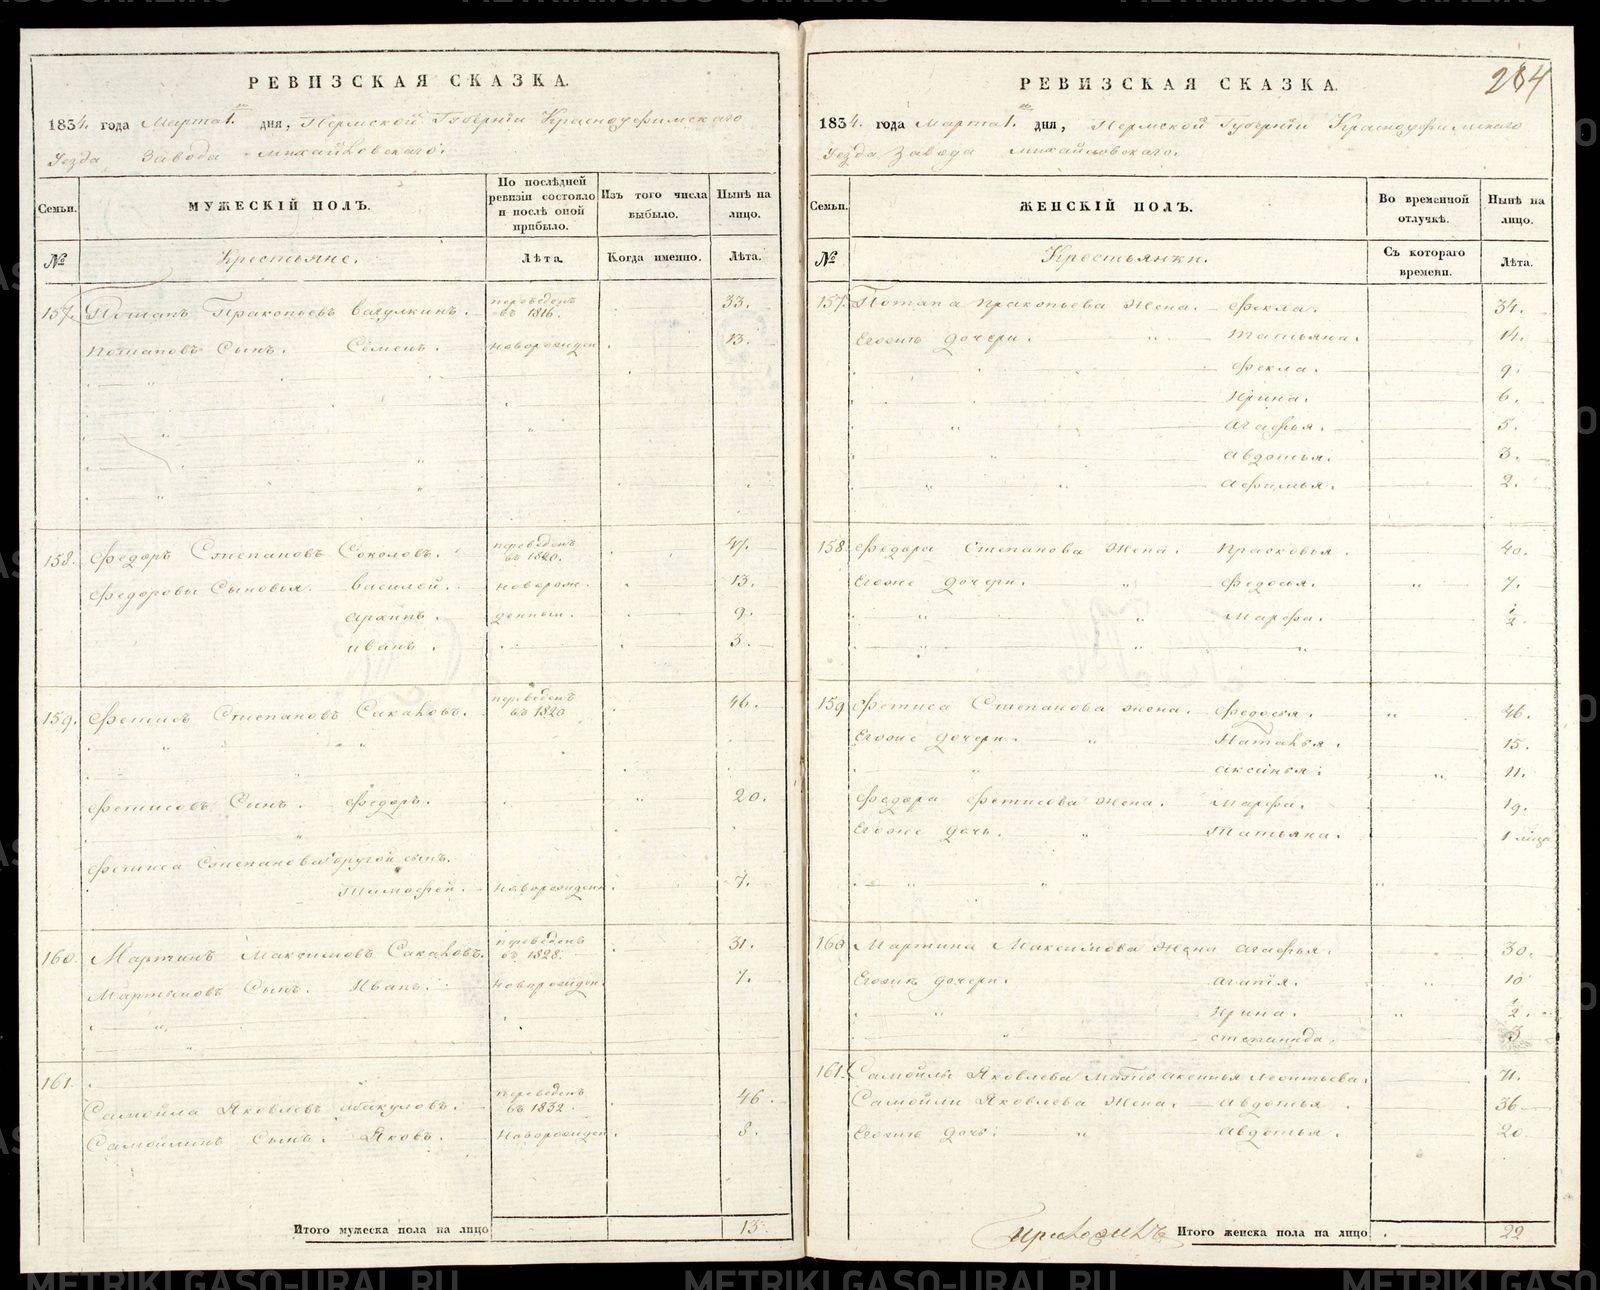 РЕВИЗСКАЯ СКАЗКА.
1834. года Марта 1. дня, Пермской Губернии Красноуфимского
Уезда Завода михайловского.
Семьи.
МУЖЕСКІЙ ПОЛЪ.
По послѣдней ревизіи состояло и послѣ оной прибыло.
Изъ того числа выбыло.
Нынѣ на лицо.
№
Крестьяне.
Лѣта.
Когда именно.
Лѣта.
157. Потапъ Пракопьевъ вакулкинъ. переведенъ въ 1816. 33.
Потаповъ Сынъ. Семенъ. новорожден 13.
158. Федоръ Степановъ Соколовъ. переведенъ въ 1820. 47.
Федоровы Сыновья. василей. новорож- 13.
денныи. 9.
иванъ. 3.
159. Фетисъ Степановъ Сакаловъ. переведенъ въ 1820 46.
Фетисовъ Сынъ. Федоръ. 20.
Фетиса Степанова другой сынъ.
Тимофей. Новорожденъ 7.
160. Мартинъ Максимовъ Сакаловъ. переведенъ въ 1828. 31.
Мартыновъ Сынъ. Иванъ. Новорожден. 7.
161.
Самойла Яковлевъ абакуловъ. переведенъ въ 1832. 46.
Самойлинъ Сынъ. Яковъ. Новорожден. 8.
Итого мужеска пола на лицо 13.
284
РЕВИЗСКАЯ СКАЗКА.
1834. года Марта 1. дня, Пермской Губернии Красноуфимского
Уезда Завода михайловского.
Семьи.
ЖЕНСКІЙ ПОЛЪ.
Во временной отлучкѣ.
Нынѣ на лицо.
№
Крестьянки.
Съ котораго времени.
Лѣта.
157. Потапа пракопьева жена. Фекла. 34.
Егожъ дочери. Татьяна. 14.
Фекла. 9.
Ирина. 6.
агафья. 5.
авдотья. 3.
афимья. 2.
158. Федора Степанова жена. прасковья. 40.
Егоже дочери. Федосья. 7.
Марфа. 1/2
159 Фетиса Степанова жена. Федосья. 46.
Егоже дочери. Наталья. 15.
аксинья. 11.
Федора Фетисова жена. Марфа. 19.
Егоже дочь. Татьяна. 1
160 Мартина Максимова жена агафья. 30.
Егожъ дочери. агапія. 10
Ирина. 1/2.
степанида. 3
161. Самойлы Яковлева мать аксинья леонтьева. 71.
Самойлы Яковлева жена. авдотья. 36
Егожъ дочь. авдотья. 20
Итого женска пола на лицо 22
METRIKI.GASO-URAL.RU
METRIKI.GASO-URAL.RU
METRIKI.GASO